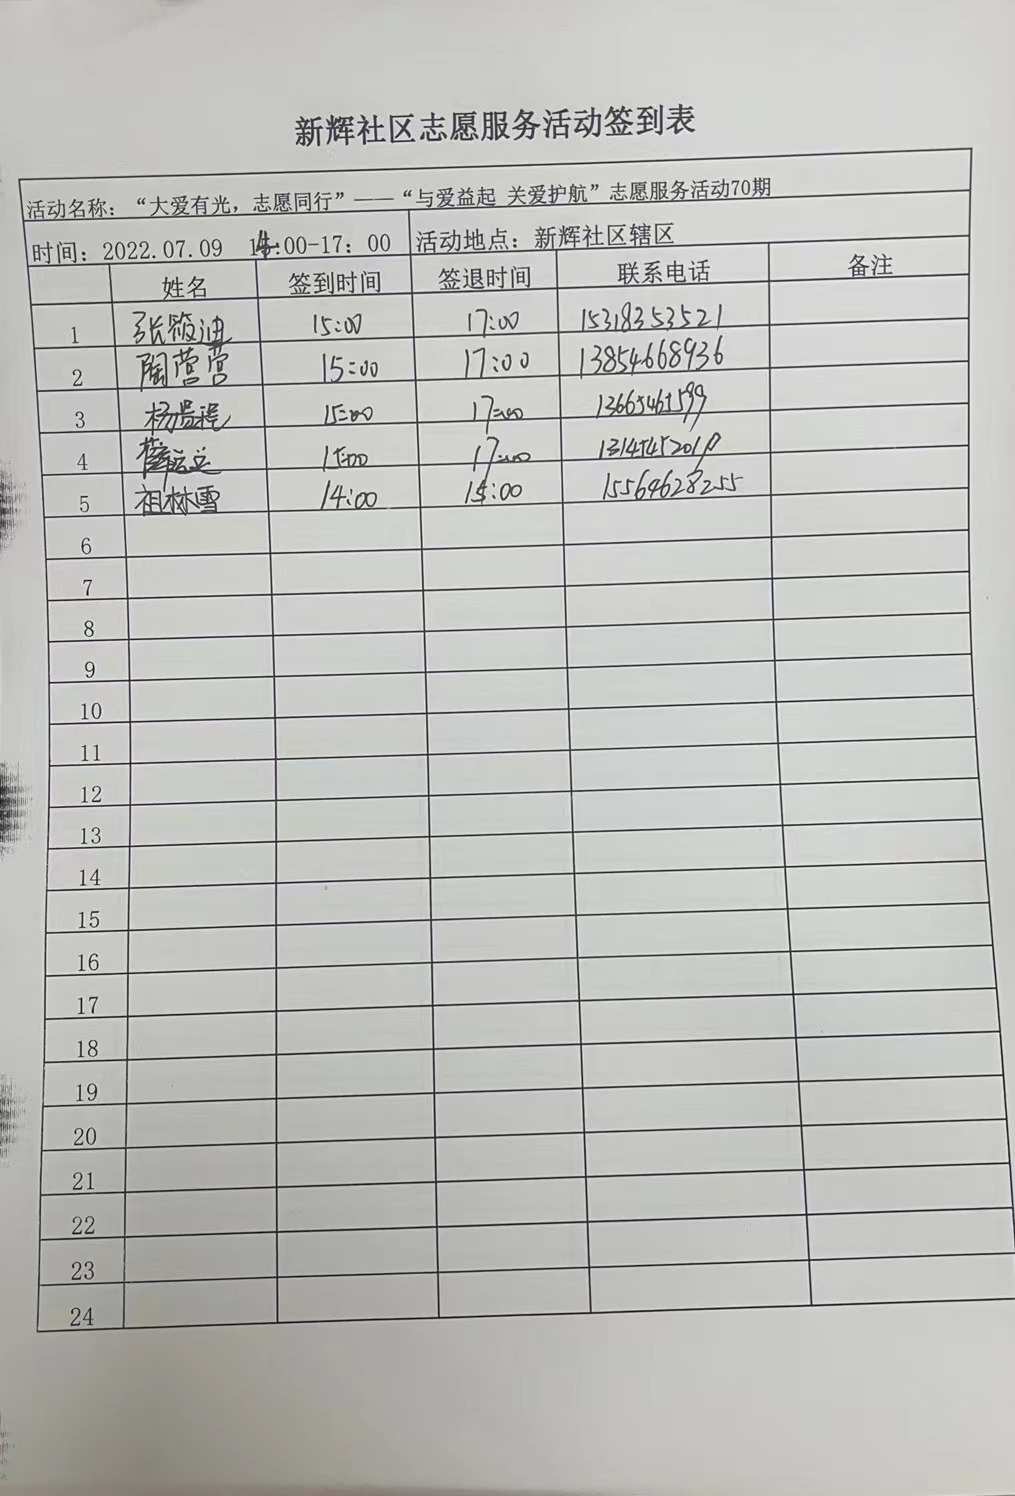 新辉社区志愿服务活动签到表
活动名称：“大爱有光，志愿同行”——“与爱益起 关爱护航”志愿服务活动70期
时间：2022.07.09 14:00-17：00 活动地点：新辉社区辖区
姓名 签到时间 签退时间 联系电话 备注
1 张筱迪 15:00 17:00 15318353521
2 陶营营 15:00 17:00 13854668936
3 15:00 17:00
4 15:00 17:00
5 祖林雪 14:00 15:00 15564628255
6
7
8
9
10
11
12
13
14
15
16
17
18
19
20
21
22
23
24